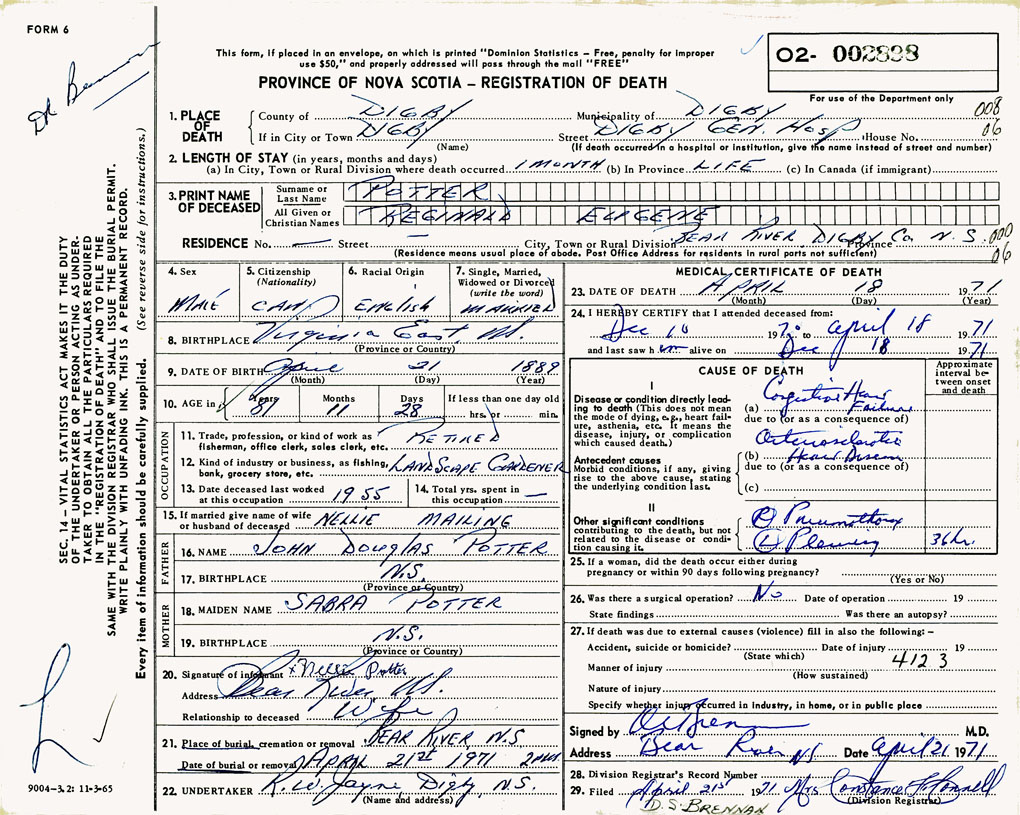 FORM 6
Dr Brennan
This form, if placed in an envelope, on which is printed "Dominion Statistics – Free, penalty for improper
use $50," and properly addressed will pass through the mail "FREE"
PROVINCE OF NOVA SCOTIA – REGISTRATION OF DEATH
02- 002838
For use of the Department only
SEC. 14 – VITAL STATISTICS ACT MAKES IT THE DUTY
OF THE UNDERTAKER OR PERSON ACTING AS UNDER-
TAKER TO OBTAIN ALL THE PARTICULARS REQUIRED
IN THE "REGISTRATION OF DEATH" AND TO FILE THE
SAME WITH THE DIVISION REGISTRAR WHO SHALL ISSUE THE BURIAL PERMIT.
WRITE PLAINLY WITH UNFADING INK. THIS IS A PERMANENT RECORD.
Every item of information should be carefully supplied. (See reverse side for instructions.)
1. PLACE OF DEATH County of DIGBY Municipality of DIGBY 008
If in City or Town DIGBY Street DIGBY GEN. HOSP House No. 06
(Name) (If death occurred in a hospital or institution, give the name instead of street and number)
2. LENGTH OF STAY (in years, months and days)
(a) In City, Town or Rural Division where death occurred 1 MONTH (b) In Province LIFE (c) In Canada (if immigrant)
3. PRINT NAME OF DECEASED Surname or Last Name POTTER
All Given or Christian Names REGINALD EUGENE
RESIDENCE No. — Street — City, Town or Rural Division BEAR RIVER, DIGBY Co Province N.S. 000
(Residence means usual place of abode. Post Office Address for residents in rural parts not sufficient) 06
4. Sex MALE
5. Citizenship (Nationality) CAN
6. Racial Origin ENGLISH
7. Single, Married, Widowed or Divorced (write the word) MARRIED
8. BIRTHPLACE Virginia East, N.S.
(Province or Country)
9. DATE OF BIRTH April 21 1889
(Month) (Day) (Year)
10. AGE in Years 81 Months 11 Days 28 If less than one day old hrs. or min.
OCCUPATION
11. Trade, profession, or kind of work as fisherman, office clerk, sales clerk, etc. RETIRED
12. Kind of industry or business, as fishing, bank, grocery store, etc. LANDSCAPE GARDENER
13. Date deceased last worked at this occupation 1955
14. Total yrs. spent in this occupation —
15. If married give name of wife or husband of deceased NELLIE MAILING
FATHER
16. NAME JOHN DOUGLAS POTTER
17. BIRTHPLACE N.S.
(Province or Country)
MOTHER
18. MAIDEN NAME SABRA POTTER
19. BIRTHPLACE N.S.
(Province or Country)
20. Signature of informant Nellie Potter
Address Bear River N.S.
Relationship to deceased Wife
21. Place of burial, cremation or removal BEAR RIVER N.S
Date of burial or removal APRIL 21st 1971 2 P.M.
22. UNDERTAKER R.W. Jayne Digby N.S.
(Name and address)
9004-3.2: 11-3-65
MEDICAL CERTIFICATE OF DEATH
23. DATE OF DEATH APRIL 18 1971
(Month) (Day) (Year)
24. I HEREBY CERTIFY that I attended deceased from:
Dec 10 1970 to april 18 1971
and last saw him alive on Dec 18 1971
CAUSE OF DEATH
Approximate interval between onset and death
I
Disease or condition directly leading to death (This does not mean the mode of dying, e.g., heart failure, asthenia, etc. It means the disease, injury, or complication which caused death.)
(a) Congestive Heart Failure
due to (or as a consequence of)
Antecedent causes
Morbid conditions, if any, giving rise to the above cause, stating the underlying condition last.
(b) Arteriosclerotic Heart Disease
due to (or as a consequence of)
(c)
II
Other significant conditions
contributing to the death, but not related to the disease or condition causing it.
(R) Pneumothorax
(L) Pleurisy 36 hr.
25. If a woman, did the death occur either during
pregnancy or within 90 days following pregnancy?
(Yes or No)
26. Was there a surgical operation? No Date of operation 19
State findings Was there an autopsy?
27. If death was due to external causes (violence) fill in also the following: –
Accident, suicide or homicide? Date of injury 19
(State which) 4123
Manner of injury
(How sustained)
Nature of injury
Specify whether injury occurred in industry, in home, or in public place
Signed by M.D.
Address Bear River N.S. Date April 21 1971
28. Division Registrar's Record Number
29. Filed April 21st 1971 Mrs Constance F. Connell
D. S. BRENNAN (Division Registrar)